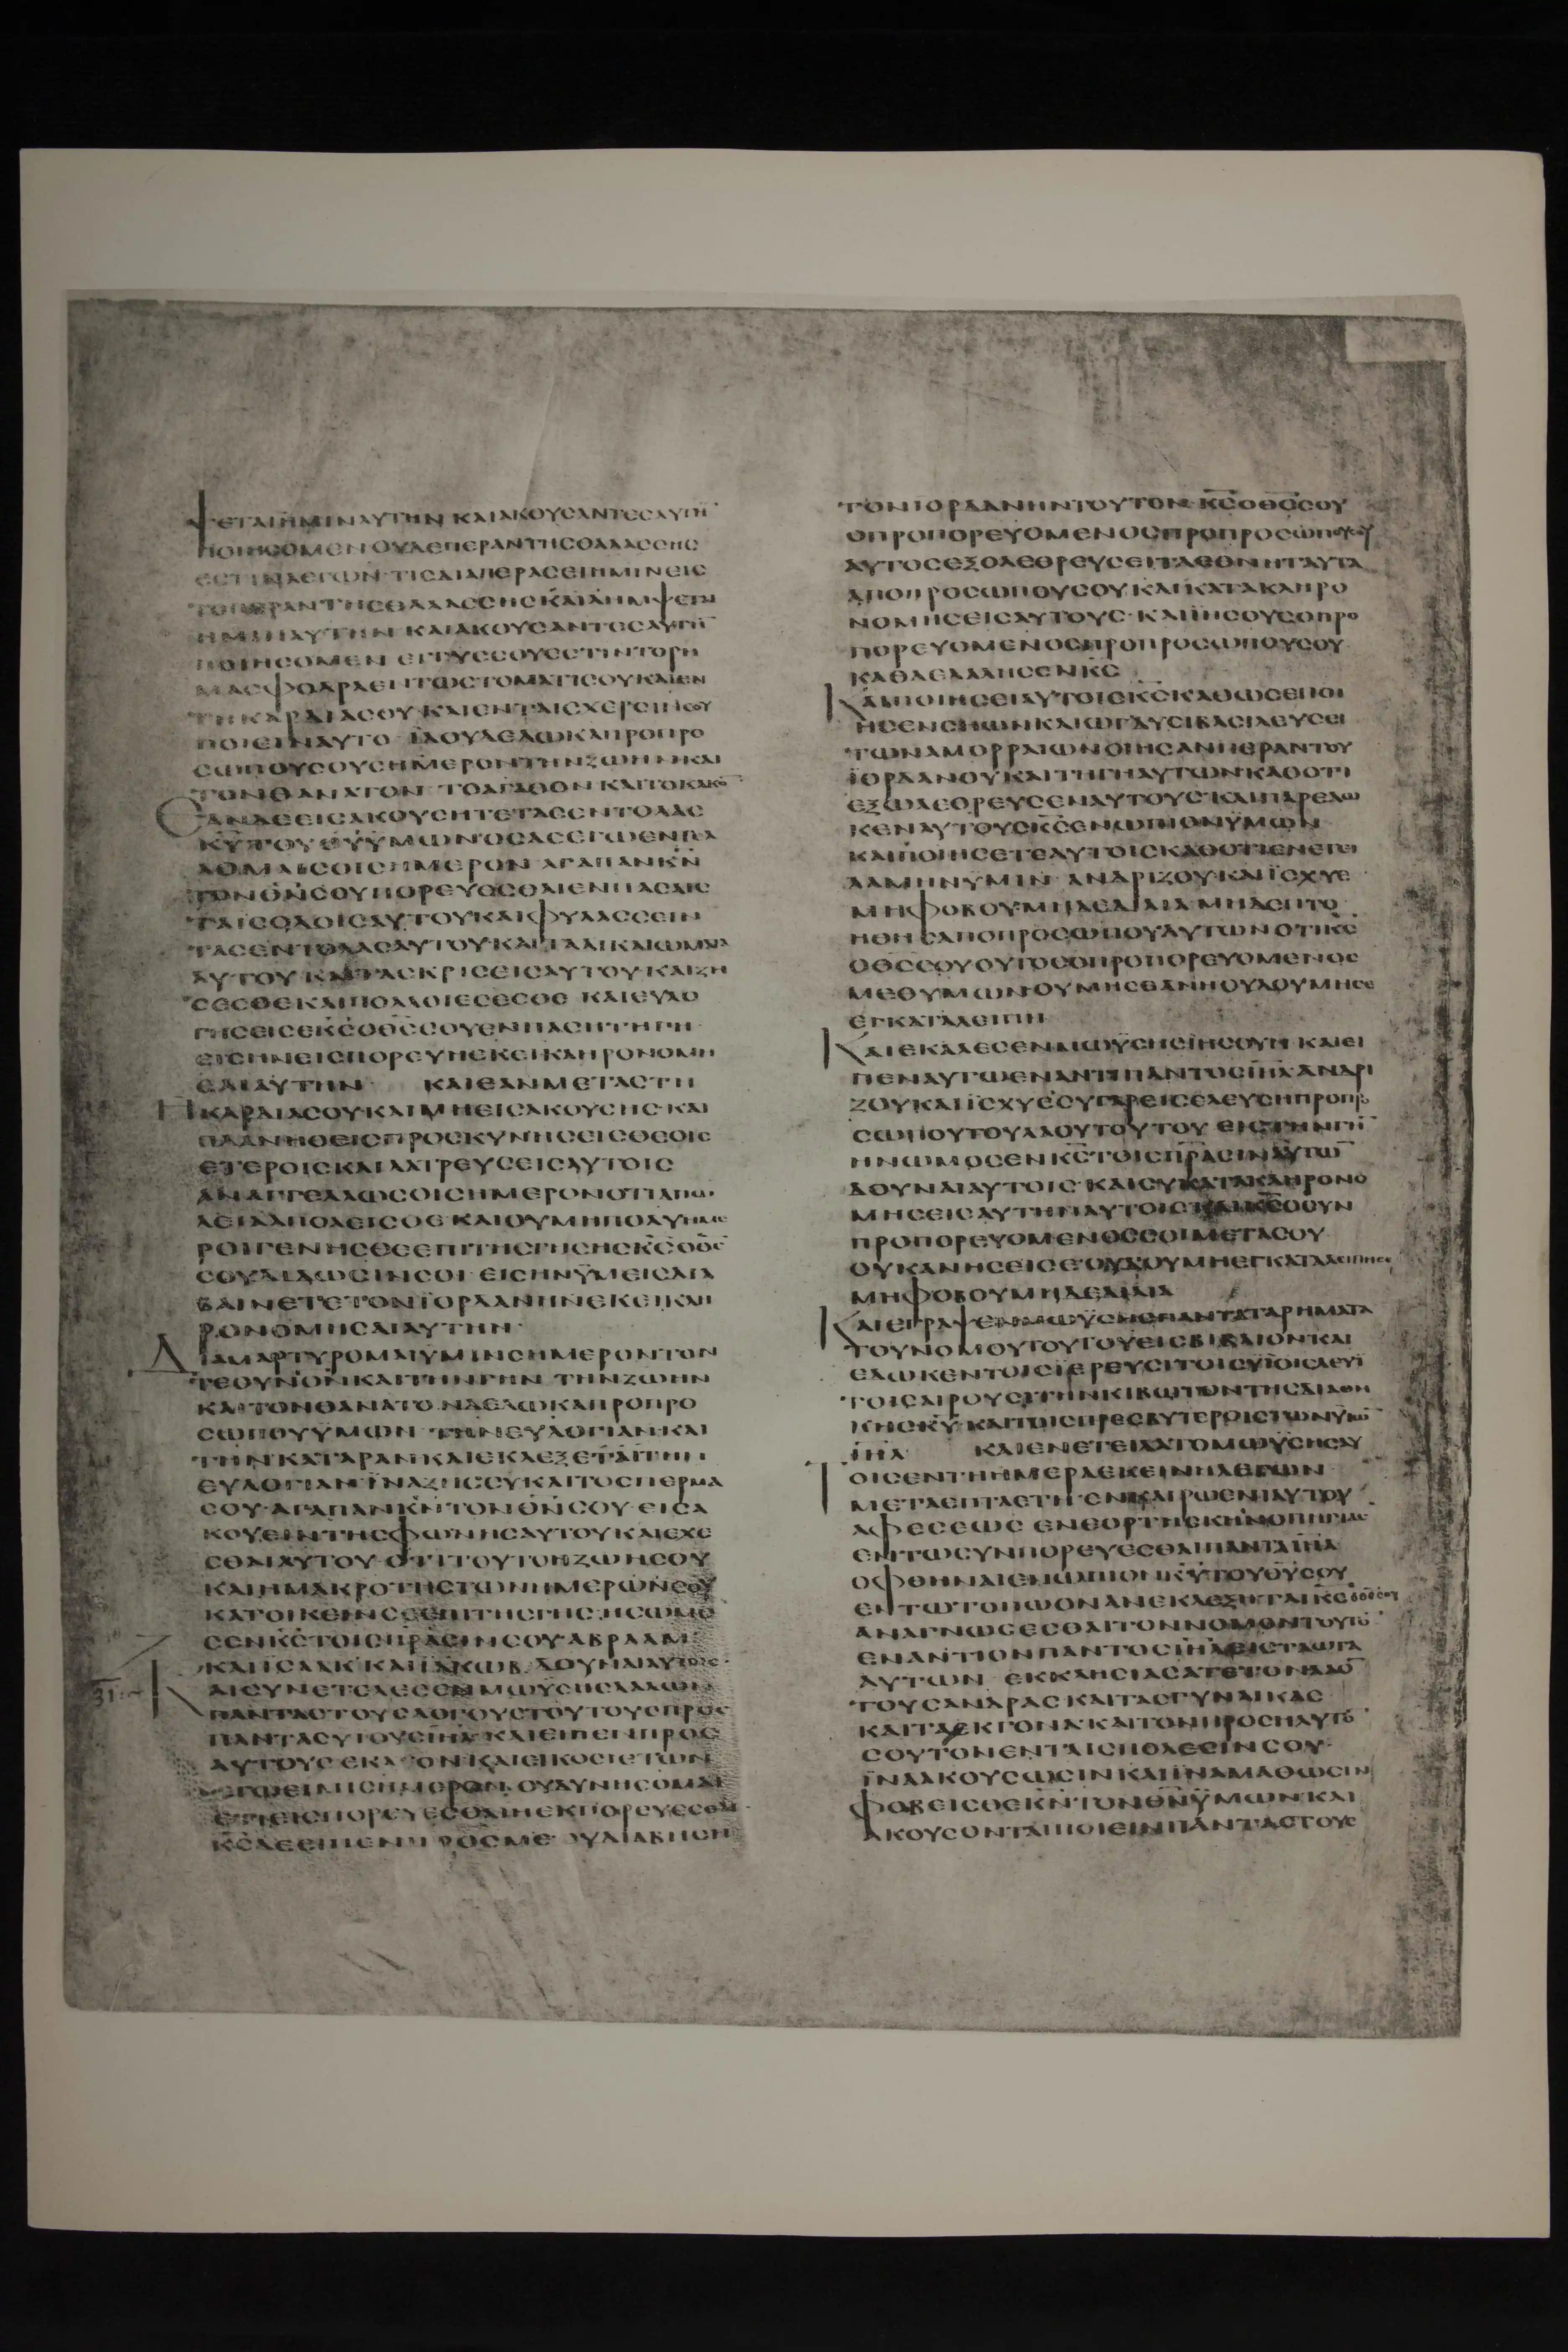 ΨΕΤΑΙΗΜΙΝΑΥΤΗΝ ΚΑΙΑΚΟΥϹΑΝΤΕϹΑΥΤΗ̅
ΠΟΙΗϹΟΜΕΝ ΟΥΔΕΠΕΡΑΝΤΗϹΘΑΛΑϹϹΗϹ
ΕϹΤΙΝΛΕΓΩΝ ΤΙϹΔΙΑΠΕΡΑϹΕΙΗΜΙΝΕΙϹ
ΤΟΠΕΡΑΝΤΗϹΘΑΛΑϹϹΗϹΚΑΙΛΗΜΨΕΤΑΙ
ΗΜΙΝΑΥΤΗΝ ΚΑΙΑΚΟΥϹΑΝΤΕϹΑΥΤΗ̅
ΠΟΙΗϹΟΜΕΝ ΕΓΓΥϹϹΟΥΕϹΤΙΝΤΟΡΗ
ΜΑϹΦΟΔΡΑΕΝΤΩϹΤΟΜΑΤΙϹΟΥΚΑΙΕΝ
ΤΗΚΑΡΔΙΑϹΟΥ ΚΑΙΕΝΤΑΙϹΧΕΡϹΙΝϹΟΥ
ΠΟΙΕΙΝΑΥΤΟ ΪΔΟΥΔΕΔΩΚΑΠΡΟΠΡΟ
ϹΩΠΟΥϹΟΥϹΗΜΕΡΟΝΤΗΝΖΩΗΝΚΑΙ
ΤΟΝΘΑΝΑΤΟΝ ΤΟΑΓΑΘΟΝ ΚΑΙΤΟΚΑΚΟ̅
ΕΑΝΔΕΕΙϹΑΚΟΥϹΗΤΕΤΑϹΕΝΤΟΛΑϹ
Κ̅Υ̅ΤΟΥΘ̅Υ̅ΫΜΩΝΟϹΑϹΕΓΩΕΝΤΕΛ
ΛΟΜΑΙϹΟΙϹΗΜΕΡΟΝ ΑΓΑΠΑΝΚ̅Ν̅
ΤΟΝΘ̅Ν̅ϹΟΥΠΟΡΕΥΕϹΘΑΙΕΝΠΑϹΑΙϹ
ΤΑΙϹΟΔΟΙϹΑΥΤΟΥΚΑΙΦΥΛΑϹϹΕΙΝ
ΤΑϹΕΝΤΟΛΑϹΑΥΤΟΥΚΑΙΤΑΔΙΚΑΙΩΜΑΤΑ
ΑΥΤΟΥ ΚΑΙΤΑϹΚΡΙϹΕΙϹΑΥΤΟΥ ΚΑΙΖΗ
ϹΕϹΘΕΚΑΙΠΟΛΛΟΙΕϹΕϹΘΕ ΚΑΙΕΥΛΟ
ΓΗϹΕΙϹΕΚ̅Ϲ̅ΟΘ̅Ϲ̅ϹΟΥΕΝΠΑϹΗΤΗΓΗ
ΕΙϹΗΝΕΙϹΠΟΡΕΥΗΕΚΕΙΚΛΗΡΟΝΟΜΗ
ϹΑΙΑΥΤΗΝ ΚΑΙΕΑΝΜΕΤΑϹΤΗ
ΗΚΑΡΔΙΑϹΟΥΚΑΙΜΗΕΙϹΑΚΟΥϹΗϹ ΚΑΙ
ΠΛΑΝΗΘΕΙϹΠΡΟϹΚΥΝΗϹΕΙϹΘΕΟΙϹ
ΕΤΕΡΟΙϹΚΑΙΛΑΤΡΕΥϹΕΙϹΑΥΤΟΙϹ
ΑΝΑΓΓΕΛΛΩϹΟΙϹΗΜΕΡΟΝΟΤΙΑΠΩ
ΛΕΙΑΑΠΟΛΕΙϹΘΕ ΚΑΙΟΥΜΗΠΟΛΥΗΜΕ
ΡΟΙΓΕΝΗϹΘΕΕΠΙΤΗϹΓΗϹΗϹΚ̅Ϲ̅ΟΘ̅Ϲ̅
ϹΟΥΔΙΔΩϹΙΝϹΟΙ ΕΙϹΗΝΫΜΕΙϹΔΙΑ
ΒΑΙΝΕΤΕΤΟΝΪΟΡΔΑΝΗΝΕΚΕΙΚΛΗ
ΡΟΝΟΜΗϹΑΙΑΥΤΗΝ
ΔΙΑΜΑΡΤΥΡΟΜΑΙΫΜΙΝϹΗΜΕΡΟΝΤΟΝ
ΤΕΟΥΝ̅Ο̅Ν̅ΚΑΙΤΗΝΓΗΝ ΤΗΝΖΩΗΝ
ΚΑΙΤΟΝΘΑΝΑΤΟΝΔΕΔΩΚΑΠΡΟΠΡΟ
ϹΩΠΟΥΫΜΩΝ ΤΗΝΕΥΛΟΓΙΑΝΚΑΙ
ΤΗΝΚΑΤΑΡΑΝΚΑΙΕΚΛΕΞΕΤΑΙΤΗΝ
ΕΥΛΟΓΙΑΝΪΝΑΖΗϹϹΥΚΑΙΤΟϹΠΕΡΜΑ
ϹΟΥ ΑΓΑΠΑΝΚ̅Ν̅ΤΟΝΘ̅Ν̅ϹΟΥ ΕΙϹΑ
ΚΟΥΕΙΝΤΗϹΦΩΝΗϹΑΥΤΟΥΚΑΙΕΧΕ
ϹΘΑΙΑΥΤΟΥ ΟΤΙΤΟΥΤΟΗΖΩΗϹΟΥ
ΚΑΙΗΜΑΚΡΟΤΗϹΤΩΝΗΜΕΡΩΝϹΟΥ
ΚΑΤΟΙΚΕΙΝϹΕΕΠΙΤΗϹΓΗϹ ΗϹΩΜΟ
ϹΕΝΚ̅Ϲ̅ΤΟΙϹΠ̅Ρ̅ΑϹΙΝϹΟΥ ΑΒΡΑΑΜ
ΚΑΙΪϹΑΑΚ ΚΑΙΪΑΚΩΒ ΔΟΥΝΑΙΑΥΤΟΙϹ
ΚΑΙϹΥΝΕΤΕΛΕϹΕΝΜΩΥϹΗϹΛΑΛΩΝ
ΠΑΝΤΑϹΤΟΥϹΛΟΓΟΥϹΤΟΥΤΟΥϹΠΡΟϹ
ΠΑΝΤΑϹΥΙΟΥϹΙ̅Η̅Λ̅ ΚΑΙΕΙΠΕΝΠΡΟϹ
ΑΥΤΟΥϹ ΕΚΑΤΟΝΚΑΙΕΙΚΟϹΙΕΤΩΝ
ΕΓΩΕΙΜΙϹΗΜΕΡΟΝ ΟΥΔΥΝΗϹΟΜΑΙ
ΕΤΙΕΙϹΠΟΡΕΥΕϹΘΑΙΗΕΚΠΟΡΕΥΕϹΘΑΙ
Κ̅Ϲ̅ΔΕΕΙΠΕΝΠΡΟϹΜΕ ΟΥΔΙΑΒΗϹΗ
ΤΟΝΙΟΡΔΑΝΗΝΤΟΥΤΟΝ Κ̅Ϲ̅ΟΘ̅Ϲ̅ϹΟΥ
ΟΠΡΟΠΟΡΕΥΟΜΕΝΟϹΠΡΟΠΡΟϹΩΠΟΥϹΟΥ
ΑΥΤΟϹΕΞΟΛΕΘΡΕΥϹΕΙΤΑΕΘΝΗΤΑΥΤΑ
ΑΠΟΠΡΟϹΩΠΟΥϹΟΥ ΚΑΙΚΑΤΑΚΛΗΡΟ
ΝΟΜΗϹΕΙϹΑΥΤΟΥϹ ΚΑΙΪΗϹΟΥϹΟΠΡΟ
ΠΟΡΕΥΟΜΕΝΟϹΠΡΟΠΡΟϹΩΠΟΥϹΟΥ
ΚΑΘΑΕΛΑΛΗϹΕΝΚ̅Ϲ̅
ΚΑΙΠΟΙΗϹΕΙΑΥΤΟΙϹΚ̅Ϲ̅ΚΑΘΩϹΕΠΟΙ
ΗϹΕΝϹΗΩΝΚΑΙΩΓΔΥϹΙΒΑϹΙΛΕΥϹΕΙ
ΤΩΝΑΜΟΡΡΑΙΩΝΟΙΗϹΑΝΠΕΡΑΝΤΟΥ
ΪΟΡΔΑΝΟΥΚΑΙΤΗΓΗΑΥΤΩΝΚΑΘΟΤΙ
ΕΞΩΛΕΘΡΕΥϹΕΝΑΥΤΟΥϹ ΚΑΙΠΑΡΕΔΩ
ΚΕΝΑΥΤΟΥϹΚ̅Ϲ̅ΕΝΩΠΙΟΝΫΜΩΝ
ΚΑΙΠΟΙΗϹΕΤΕΑΥΤΟΙϹΚΑΘΟΤΙΕΝΕΤΕΙ
ΛΑΜΗΝΫΜΙΝ ΑΝΔΡΙΖΟΥ ΚΑΙΪϹΧΥΕ
ΜΗΦΟΒΟΥ ΜΗΔΕΔΙΛΙΑ ΜΗΔΕΠΤΟ
ΗΘΗϹΑΠΟΠΡΟϹΩΠΟΥΑΥΤΩΝ ΟΤΙΚ̅Ϲ̅
ΟΘ̅Ϲ̅ϹΟΥΟΥΤΟϹΟΠΡΟΠΟΡΕΥΟΜΕΝΟϹ
ΜΕΘΥΜΩΝΟΥΜΗϹΕΑΝΗΟΥΔΟΥΜΗϹΕ
ΕΓΚΑΤΑΛΕΙΠΗ
ΚΑΙΕΚΑΛΕϹΕΝΜΩΫϹΗϹΪΗϹΟΥΝ ΚΑΙΕΙ
ΠΕΝΑΥΤΩΕΝΑΝΤΙΠΑΝΤΟϹΙ̅Η̅Λ̅ ΑΝΔΡΙ
ΖΟΥΚΑΙΪϹΧΥΕϹΥΓΑΡΕΙϹΕΛΕΥϹΗΠΡΟΠΡΟ
ϹΩΠΟΥΤΟΥΛΑΟΥΤΟΥΤΟΥ ΕΙϹΤΗΝΓΗ̅
ΗΝΩΜΟϹΕΝΚ̅Ϲ̅ΤΟΙϹΠ̅Ρ̅ΑϹΙΝΑΥΤΩ̅
ΔΟΥΝΑΙΑΥΤΟΙϹ ΚΑΙϹΥΚΑΤΑΚΛΗΡΟΝΟ
ΜΗϹΕΙϹΑΥΤΗΝΑΥΤΟΙϹ ΚΑΙΚ̅Ϲ̅ΟϹΥΝ
ΠΡΟΠΟΡΕΥΟΜΕΝΟϹϹΟΙΜΕΤΑϹΟΥ
ΟΥΚΑΝΗϹΕΙϹΕΟΥΔΟΥΜΗΕΓΚΑΤΑΛΕΙΠΗϹΕ
ΜΗΦΟΒΟΥΜΗΔΕΔΙΛΙΑ
ΚΑΙΕΓΡΑΨΕΝΜΩΫϹΗϹΠΑΝΤΑΤΑΡΗΜΑΤΑ
ΤΟΥΝΟΜΟΥΤΟΥΤΟΥΕΙϹΒΙΒΛΙΟΝΚΑΙ
ΕΔΩΚΕΝΤΟΙϹΙΕΡΕΥϹΙΤΟΙϹΥΪΟΙϹΛΕΥΙ
ΤΟΙϹΑΙΡΟΥϹΙΤΗΝΚΙΒΩΤΟΝΤΗϹΔΙΑΘΗ
ΚΗϹΚ̅Υ̅ ΚΑΙΤΟΙϹΠΡΕϹΒΥΤΕΡΟΙϹΤΩΝΫΙΩ̅
Ι̅Η̅Λ̅ ΚΑΙΕΝΕΤΕΙΛΑΤΟΜΩΫϹΗϹΑΥ
ΤΟΙϹΕΝΤΗΗΜΕΡΑΕΚΕΙΝΗΛΕΓΩΝ
ΜΕΤΑΕΠΤΑΕΤΗ ΕΝΚΑΙΡΩΕΝΙΑΥΤΟΥ
ΑΦΕϹΕΩϹ ΕΝΕΟΡΤΗϹΚΗΝΟΠΗΓΙΑϹ
ΕΝΤΩϹΥΝΠΟΡΕΥΕϹΘΑΙΠΑΝΤΑΙ̅Η̅Λ̅
ΟΦΘΗΝΑΙΕΝΩΠΙΟΝΚ̅Υ̅ΤΟΥΘ̅Υ̅ϹΟΥ
ΕΝΤΩΤΟΠΩΟΝΑΝΕΚΛΕΞΗΤΑΙΚ̅Ϲ̅ΟΘ̅Ϲ̅ϹΟΥ
ΑΝΑΓΝΩϹΕϹΘΑΙΤΟΝΝΟΜΟΝΤΟΥΤΟ̅
ΕΝΑΝΤΙΟΝΠΑΝΤΟϹΙ̅Η̅Λ̅ΕΙϹΤΑΩΤΑ
ΑΥΤΩΝ ΕΚΚΛΗϹΙΑϹΑΤΕΤΟΝΛΑΟ̅
ΤΟΥϹΑΝΔΡΑϹΚΑΙΤΑϹΓΥΝΑΙΚΑϹ
ΚΑΙΤΑΕΚΓΟΝΑ ΚΑΙΤΟΝΠΡΟϹΗΛΥΤΟ̅
ϹΟΥΤΟΝΕΝΤΑΙϹΠΟΛΕϹΙΝϹΟΥ
ΪΝΑΑΚΟΥϹΩϹΙΝΚΑΙΪΝΑΜΑΘΩϹΙΝ
ΦΟΒΕΙϹΘΕΚ̅Ν̅ΤΟΝΘ̅Ν̅ΫΜΩΝΚΑΙ
ΑΚΟΥϹΟΝΤΑΙΠΟΙΕΙΝΠΑΝΤΑϹΤΟΥϹ